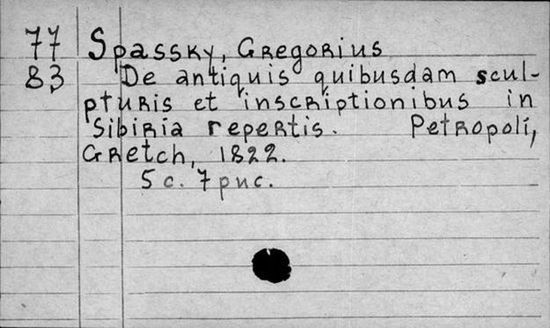 77 Spassky, Gregorius
83 De antiquis quibusdam scul-
pturis et inscriptionibus in
Sibiria repertis. Petropoli,
Gretch, 1822.
5 с. 7 рис.